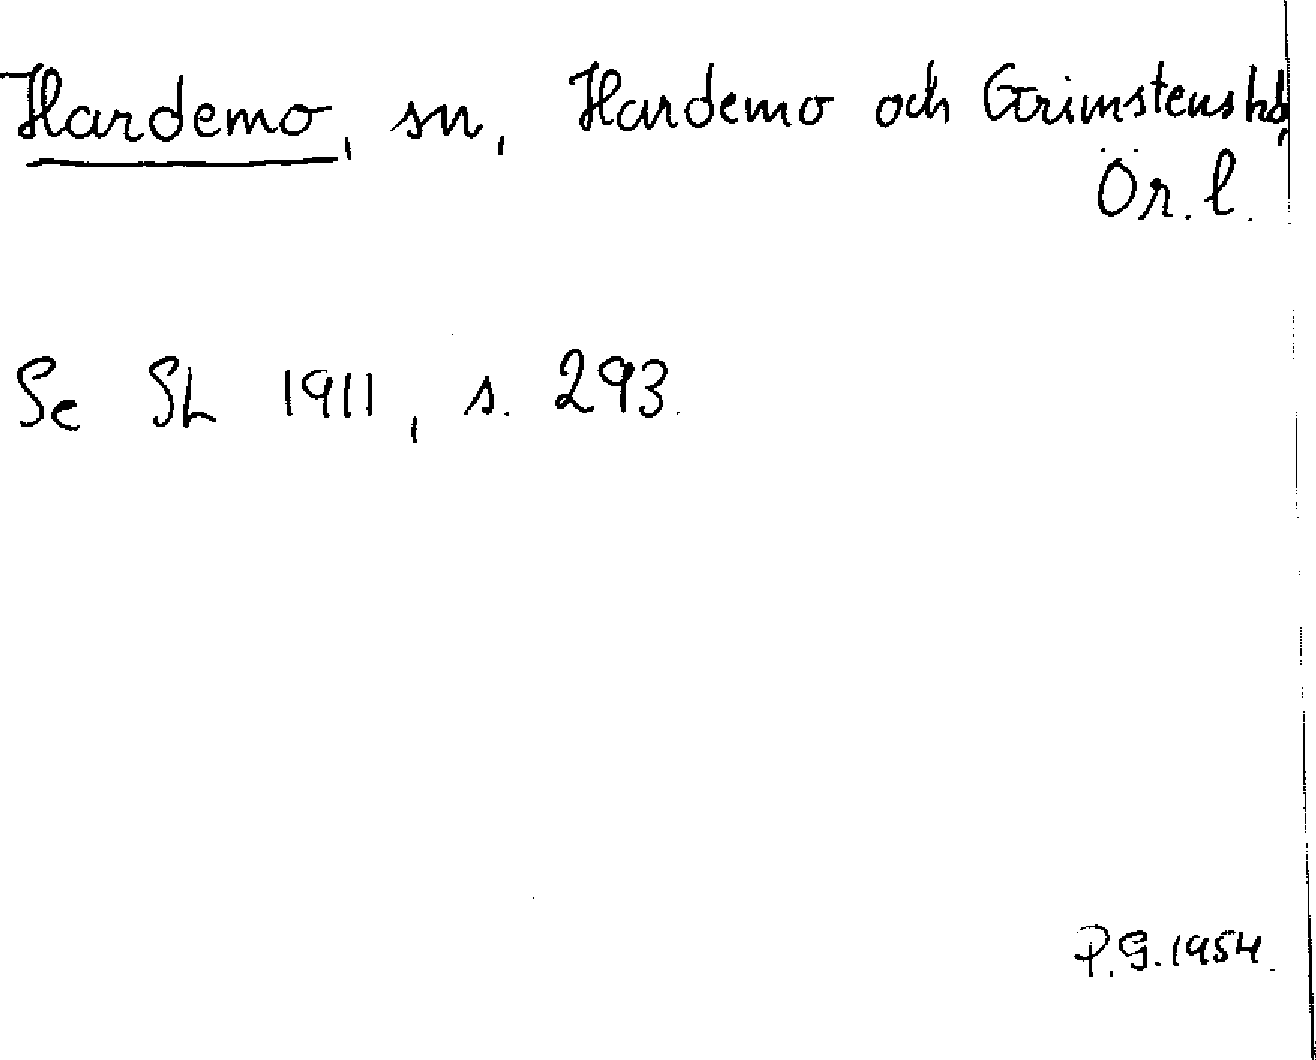 Hardemo, sn, Hardemo och Grimstens hd,
Ör. l.
Se SL 1911, s. 293.
P.G. 1954.